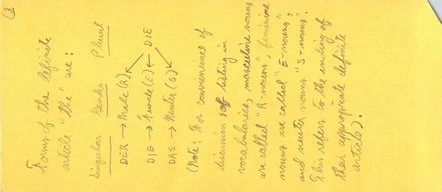 (3
Forms of the definite
article "the" are:
Singular Gender Plural
DER → Male (R)
DIE → Female (E) DIE
DAS → Neuter (S)
(Note: For convenience of
discussion of listing in
vocabularies, masculine nouns
are called "R-nouns", feminine
nouns are called "E-nouns",
and neuter nouns "S-nouns".
This refers to the ending of
their appropriate definite
article).